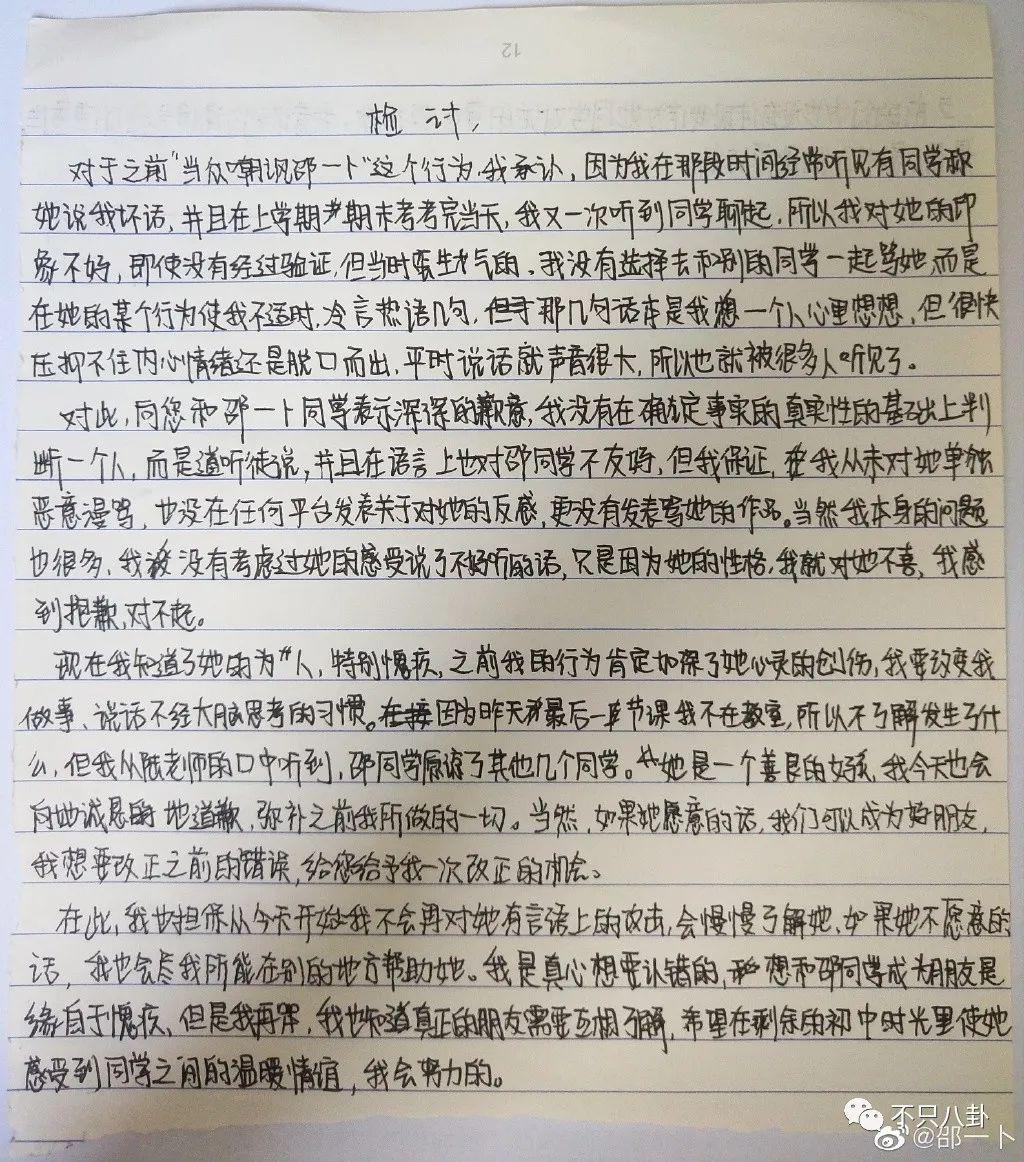 12
检讨
对于之前"当众嘲讽邵一卜"这个行为,我承认,因为我在那段时间经常听见有同学称
她说我坏话,并且在上学期期末考考完当天,我又一次听到同学聊起,所以我对她的印
象不好,即使没有经过验证,但当时蛮生气的。我没有选择去和别的同学一起骂她,而是
在她的某个行为使我不适时,冷言热语几句,但那几句话本是我想一个人心里想想,但很快
压抑不住内心情绪还是脱口而出,平时说话就声音很大,所以也就被很多人听见了。
对此,向您和邵一卜同学表示深深的歉意,我没有在确定事实的真实性的基础上判
断一个人,而是道听徒说,并且在语言上也对邵同学不友好,但我保证,我从未对她单独
恶意漫骂,也没在任何平台发表关于对她的反感,更没有发表骂她的作品。当然我本身的问题
也很多,我没有考虑过她的感受说了不好听的话,只是因为她的性格,我就对她不喜,我感
到抱歉,对不起。
现在我知道了她的为人,特别愧疚,之前我的行为肯定加深了她心灵的创伤,我要改变我
做事、说话不经大脑思考的习惯。因为昨天最后一节课我不在教室,所以不了解发生了什
么,但我从陆老师的口中听到,邵同学原谅了其他几个同学。她是一个善良的女孩,我今天也会
向她诚恳地道歉,弥补之前我所做的一切。当然,如果她愿意的话,我们可以成为好朋友,
我想要改正之前的错误,给您给予我一次改正的机会。
在此,我也担保从今天开始我不会再对她有言语上的攻击,会慢慢了解她,如果她不愿意的
话,我也会尽我所能在别的地方帮助她。我是真心想要认错的,想和邵同学成为朋友是
缘自于愧疚,但是我,我也知道真正的朋友需要互相了解,希望在剩余的初中时光里使她
感受到同学之间的温暖情谊,我会努力的。
不只八卦
@邵一卜